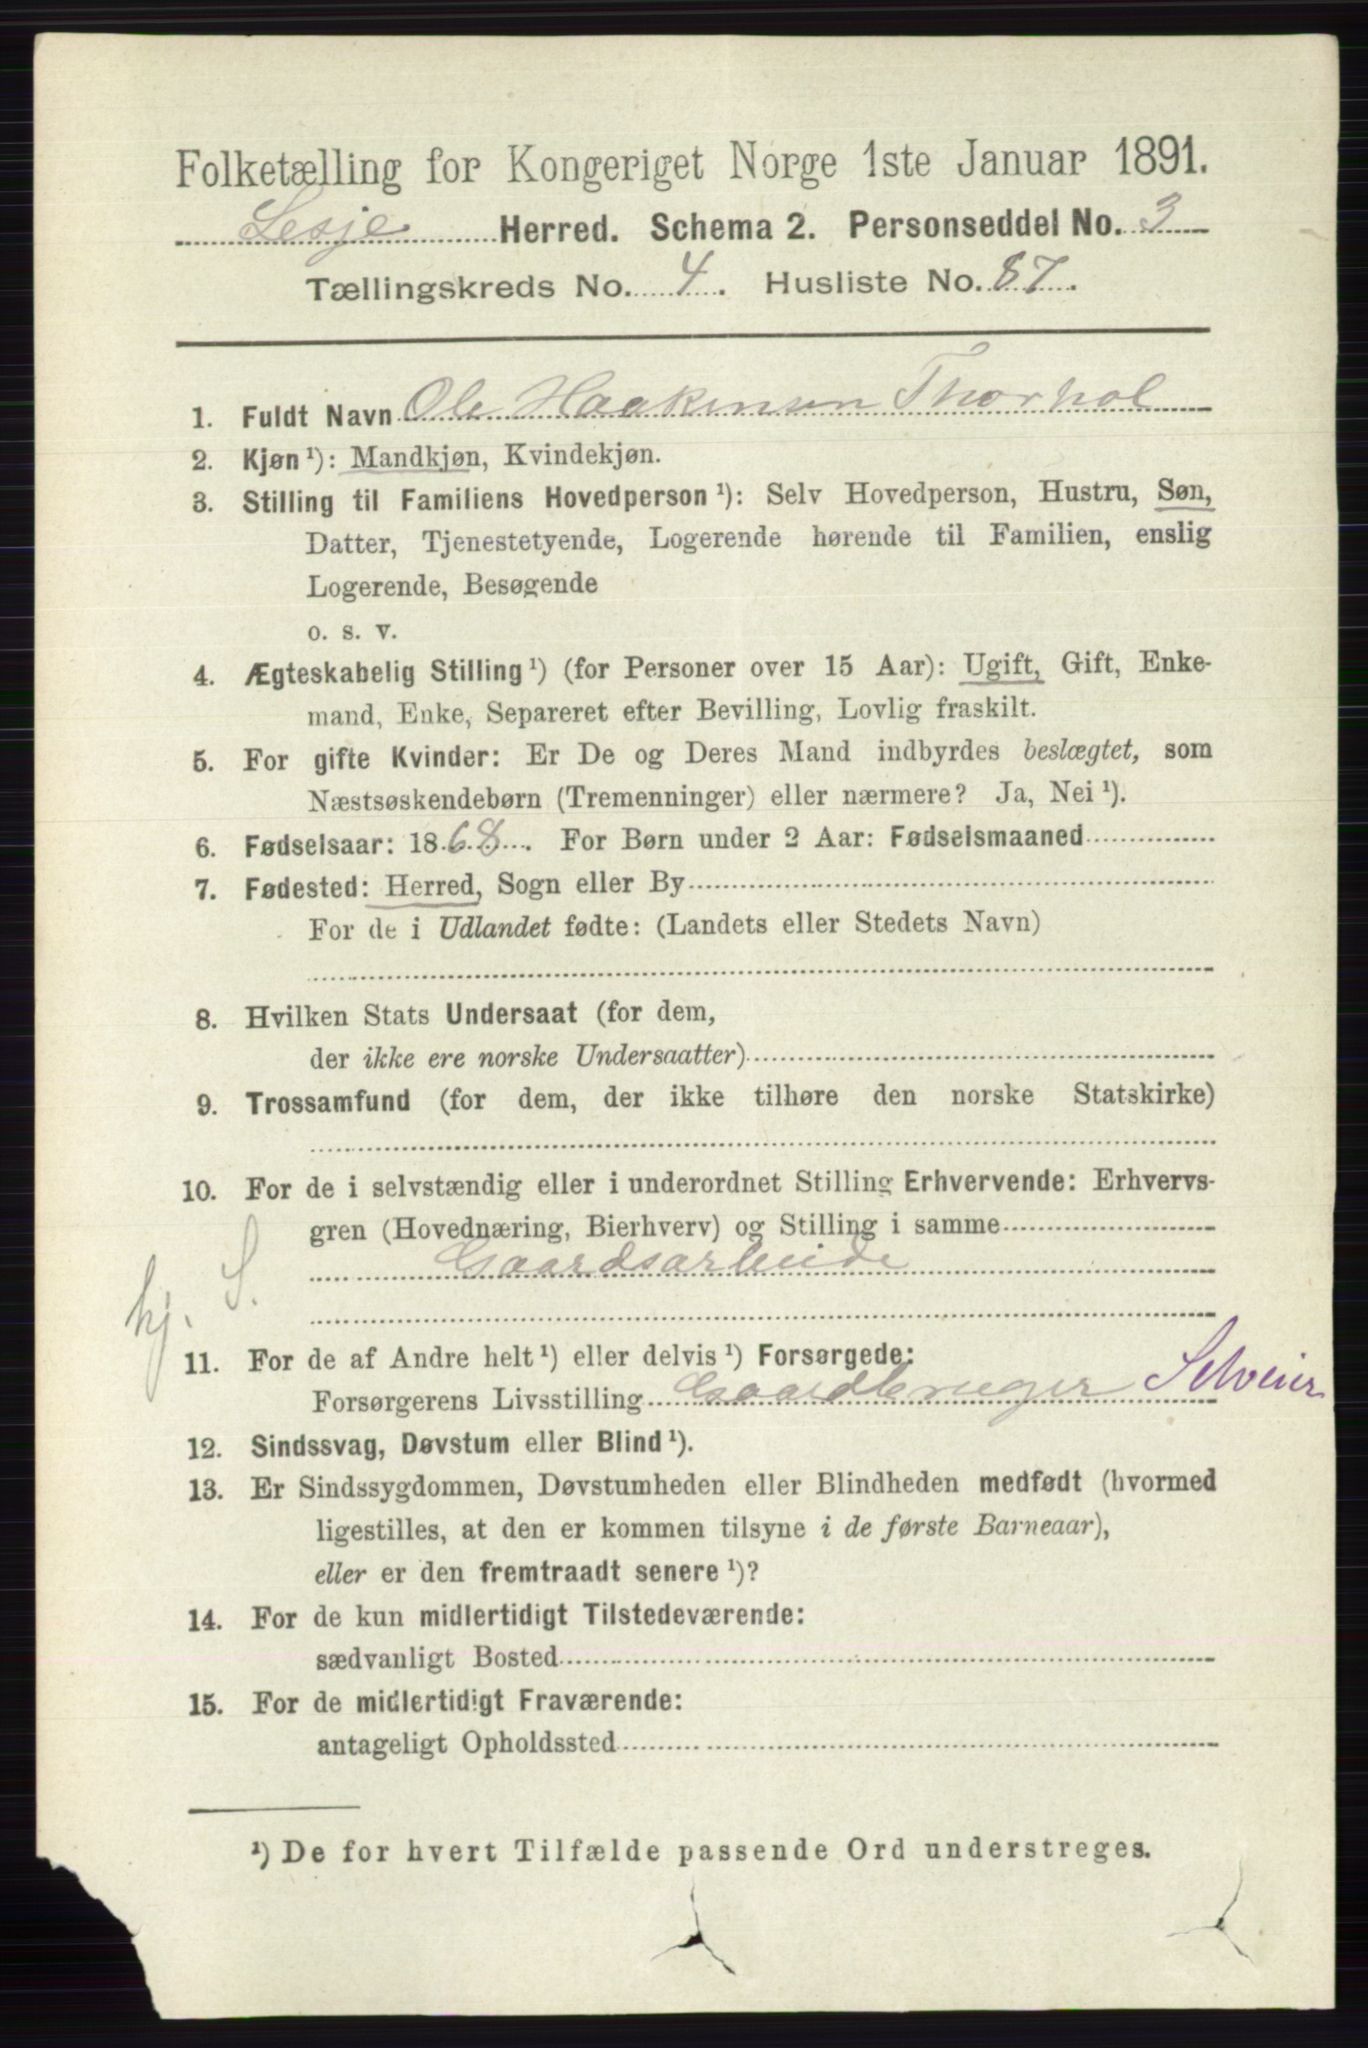 Folketælling for Kongeriget Norge 1ste Januar 1891.
Lesje Herred. Schema 2. Personseddel No. 3
Tællingskreds No. 4. Husliste No. 87.
1. Fuldt Navn Ole Haakensen Thorhol
2. Kjøn ¹): Mandkjøn, Kvindekjøn.
3. Stilling til Familiens Hovedperson ¹): Selv Hovedperson, Hustru, Søn,
Datter, Tjenestetyende, Logerende hørende til Familien, enslig
Logerende, Besøgende
o. s. v.
4. Ægteskabelig Stilling ¹) (for Personer over 15 Aar): Ugift, Gift, Enke-
mand, Enke, Separeret efter Bevilling, Lovlig fraskilt.
5. For gifte Kvinder: Er De og Deres Mand indbyrdes beslægtet, som
Næstsøskendebørn (Tremenninger) eller nærmere? Ja, Nei ¹).
6. Fødselsaar: 1868. For Børn under 2 Aar: Fødselsmaaned
7. Fødested: Herred, Sogn eller By
For de i Udlandet fødte: (Landets eller Stedets Navn)
8. Hvilken Stats Undersaat (for dem,
der ikke ere norske Undersaatter)
9. Trossamfund (for dem, der ikke tilhøre den norske Statskirke)
10. For de i selvstændig eller i underordnet Stilling Erhvervende: Erhvervs-
gren (Hovednæring, Bierhverv) og Stilling i samme
Gaardsarbeide
hj. S.
11. For de af Andre helt ¹) eller delvis ¹) Forsørgede:
Forsørgerens Livsstilling Gaardbruger Selveier
12. Sindssvag, Døvstum eller Blind ¹).
13. Er Sindssygdommen, Døvstumheden eller Blindheden medfødt (hvormed
ligestilles, at den er kommen tilsyne i de første Barneaar),
eller er den fremtraadt senere ¹)?
14. For de kun midlertidigt Tilstedeværende:
sædvanligt Bosted
15. For de midlertidigt Fraværende:
antageligt Opholdssted
¹) De for hvert Tilfælde passende Ord understreges.